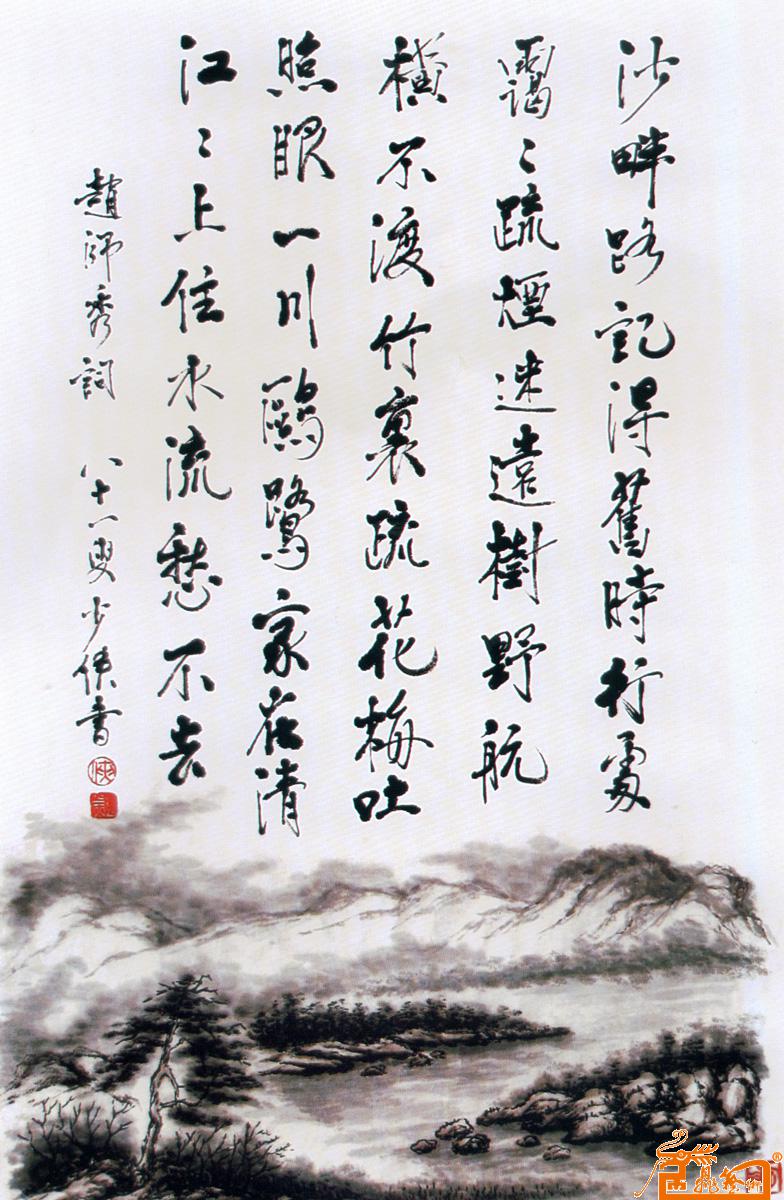 沙畔路記得舊時行處
靄〻疏煙迷遠樹野航
橫不渡竹裏疏花梅吐
照眼一川鷗鷺家在清
江〻上住水流愁不去
趙師秀詞 八十一叟少俠書